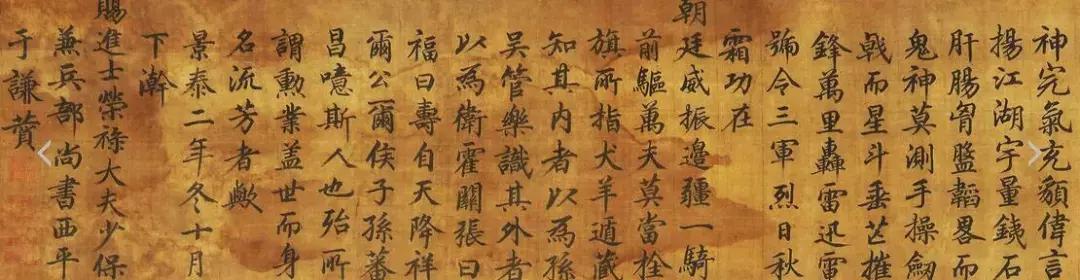 神完氣充貌偉言
揚江湖宇量銕石
肝腸胷盤韜畧而
鬼神莫測手操劒
戟而星斗垂芒摧
鋒萬里轟雷迅電
號令三軍烈日秋
霜功在
朝廷威振邊疆一騎
前驅萬夫莫當拴
旗所指犬羊遁藏
知其内者以為孫
吳管樂識其外者
以為衛霍關張曰
福曰壽自天降祥
爾公爾侯子孫蕃
昌噫斯人也殆所
謂勲業盖世而身
名流芳者歟
景泰二年冬十月
下澣
賜進士榮祿大夫少保
兼兵部尚書西平
于謙賛